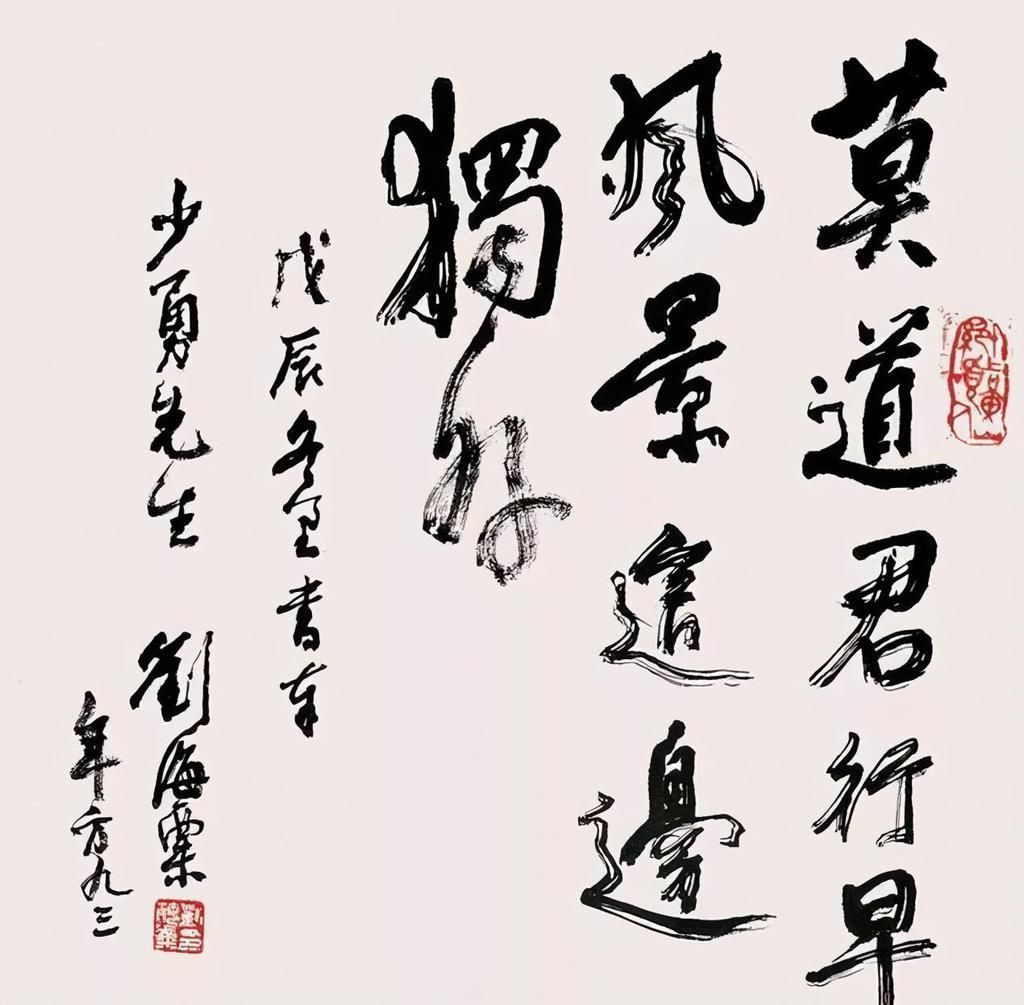 莫道君行早
風景這邊
獨好
戊辰冬至書奉
少勇先生
劉海粟
年方九三